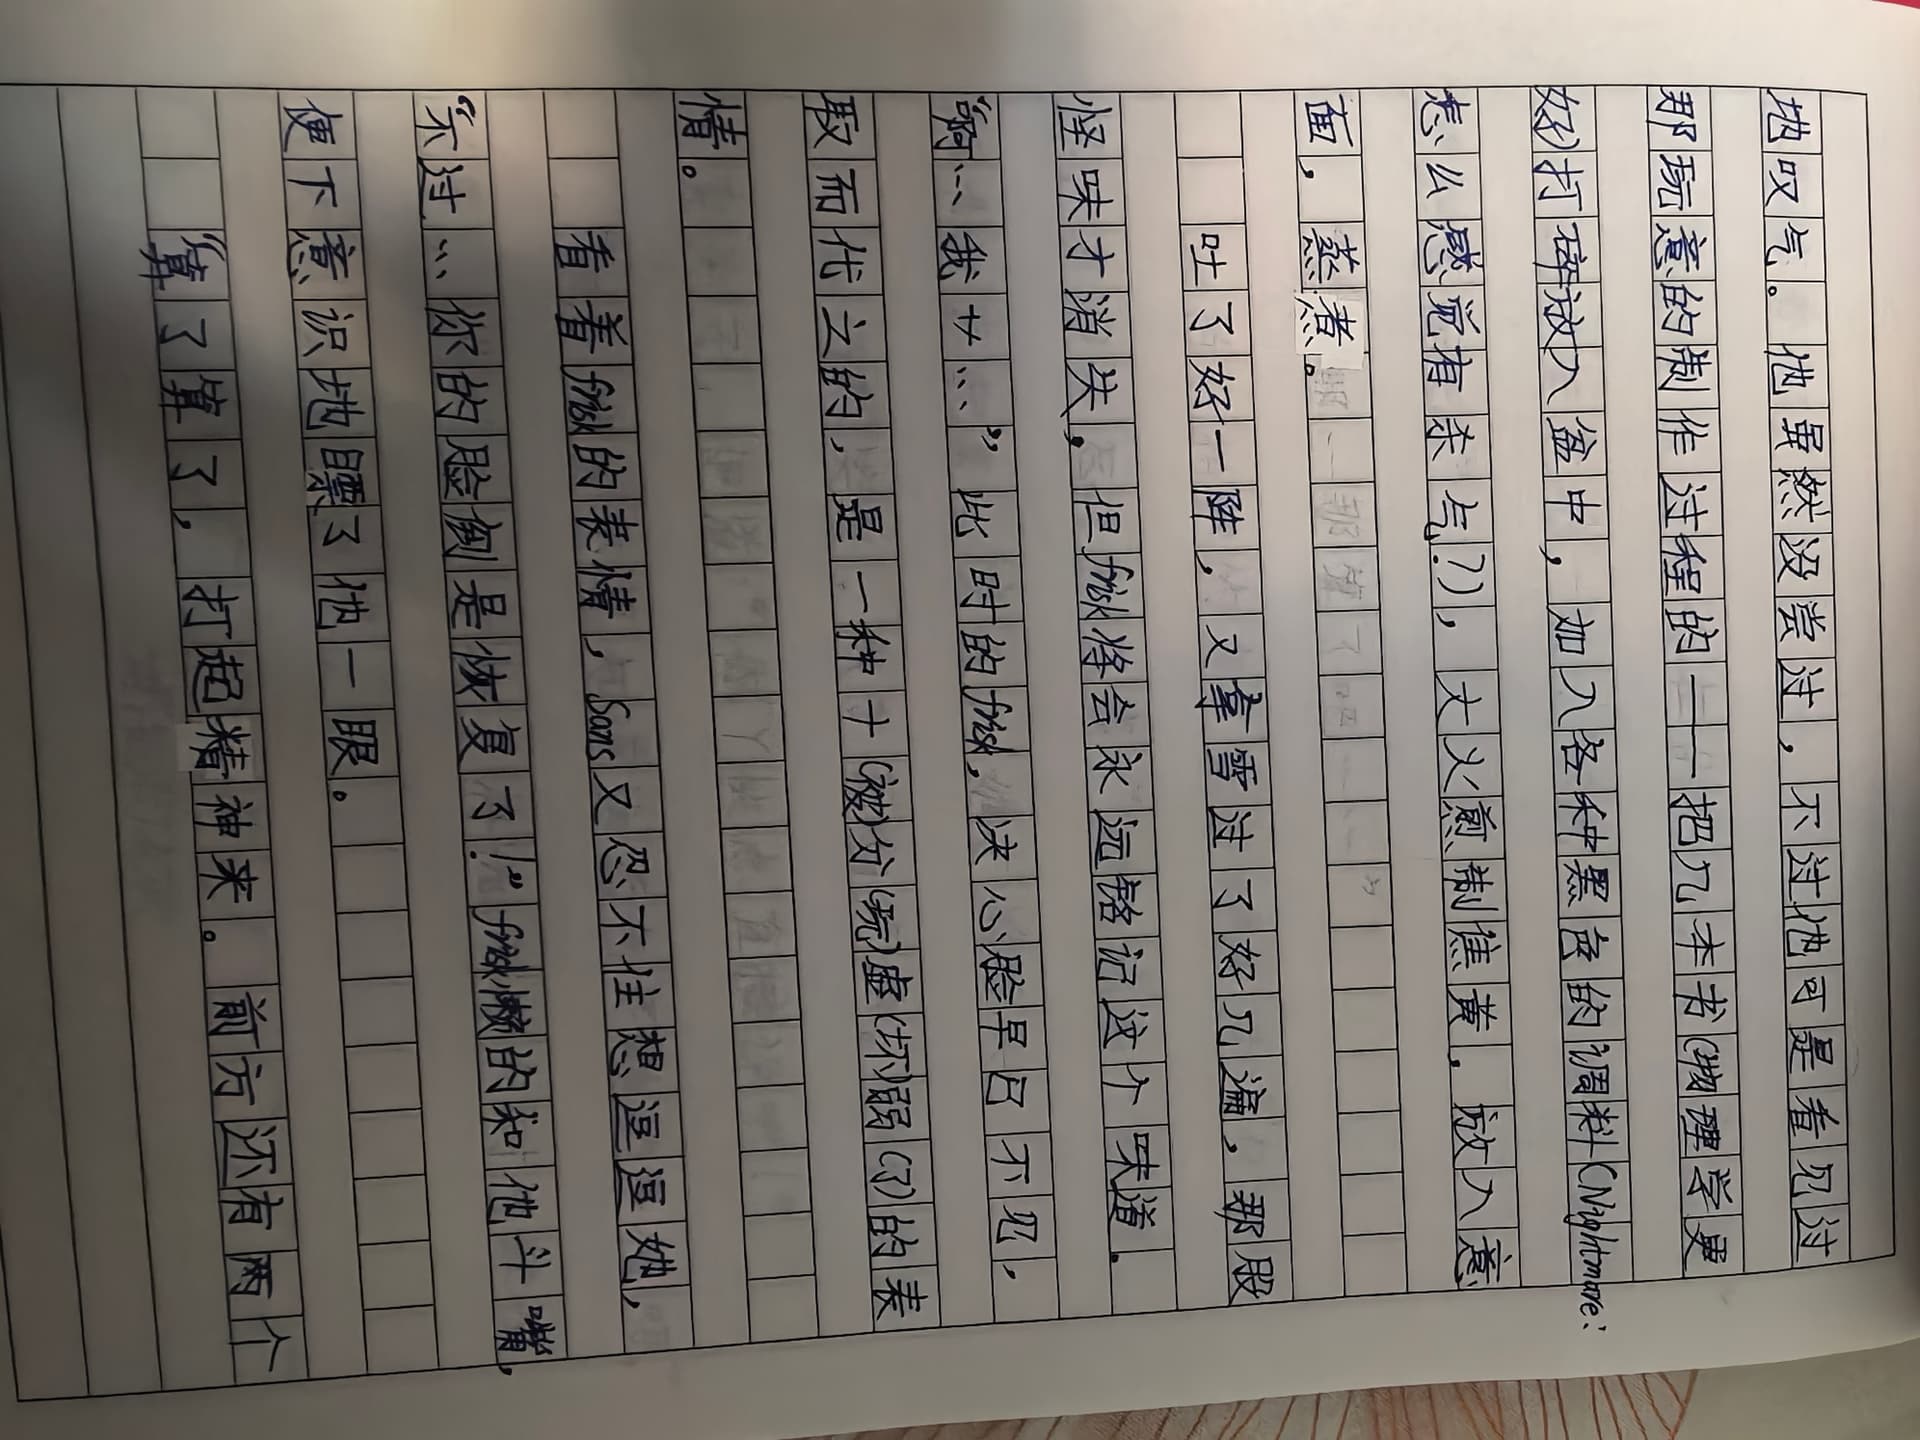 地叹气。他虽然没尝过，不过他可是看见过
那玩意的制作过程的——把几本书(物理学更
好)打碎放入盆中，加入各种黑色的调料(Nightmare:
怎么感觉有杀气?)，大火煎制焦黄，放入意
面，蒸煮。
吐了好一阵，又拿雪过了好几遍，那股
怪味才消失，但frisk将会永远铭记这个味道.
“啊……我艹……”此时的frisk，决心脸早已不见，
取而代之的，是一种十(被)分(玩)虚(坏)弱(了)的表
情。
看着frisk的表情，Sans又忍不住想逗逗她，
“不过……你的脸倒是恢复了！”frisk懒的和他斗嘴，
便下意识地瞟了他一眼。
“算了算了，打起精神来。前方还有两个